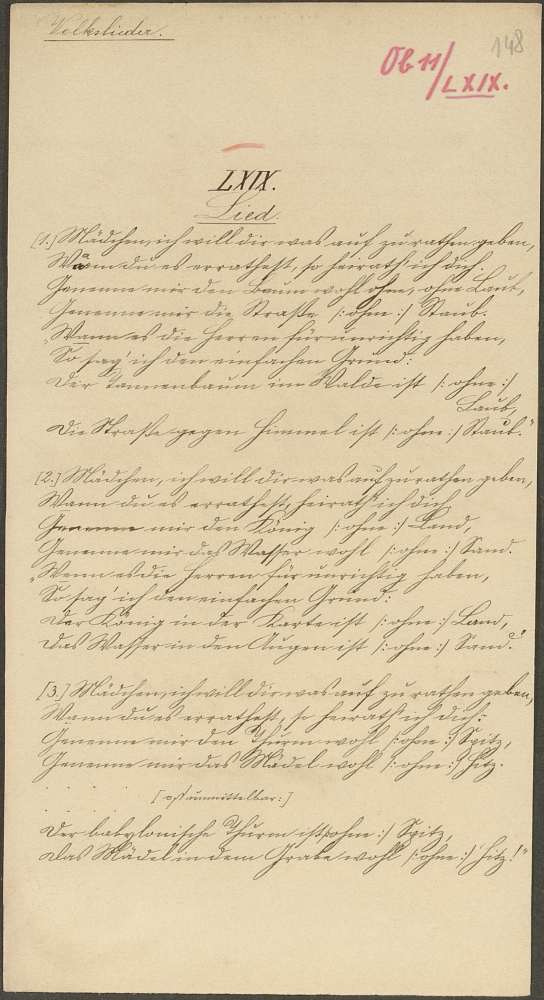 Volkslieder.
148
Ob 11/
LXIX.
LXIX.
Lied.
[1.] Mädchen, ich will dir was auf zu rathen geben,
Wann du es errathest, so heirath' ich dich.
Genenne mir den Baum wohl ohne, ohne Laub,
Genenne mir die Straße /: ohne :/ Staub.
„Wann es die Herren für unrichtig haben,
So sag' ich den einfachen Grund:
Der Tannenbaum im Walde ist /: ohne :/
Laub,
Die Straße gegen Himmel ist /: ohne :/ Staub."
[2.] Mädchen, ich will dir was auf zu rathen geben,
Wann du es errathest, heirath' ich dich
Genenne mir den König /: ohne :/ Land,
Genenne mir das Wasser wohl /: ohne :/ Sand.
„Wenn es die Herren für unrichtig haben,
So sag' ich den einfachen Grund:
Der König in der Karte ist /: ohne :/ Land,
Das Wasser in den Augen ist /: ohne :/ Sand."
[3.] Mädchen, ich will dir was auf zu rathen geben,
Wann du es errathest, so heirath' ich dich:
Genenne mir den Thurm wohl /: ohne :/ Spitz,
Genenne mir das Mädel wohl /: ohne :/ Hitz.
. . . . [unmittelbar:]
Der babylonische Thurm ist /: ohne :/ Spitz,
Das Mädel in dem Grabe wohl /: ohne :/ Hitz!"